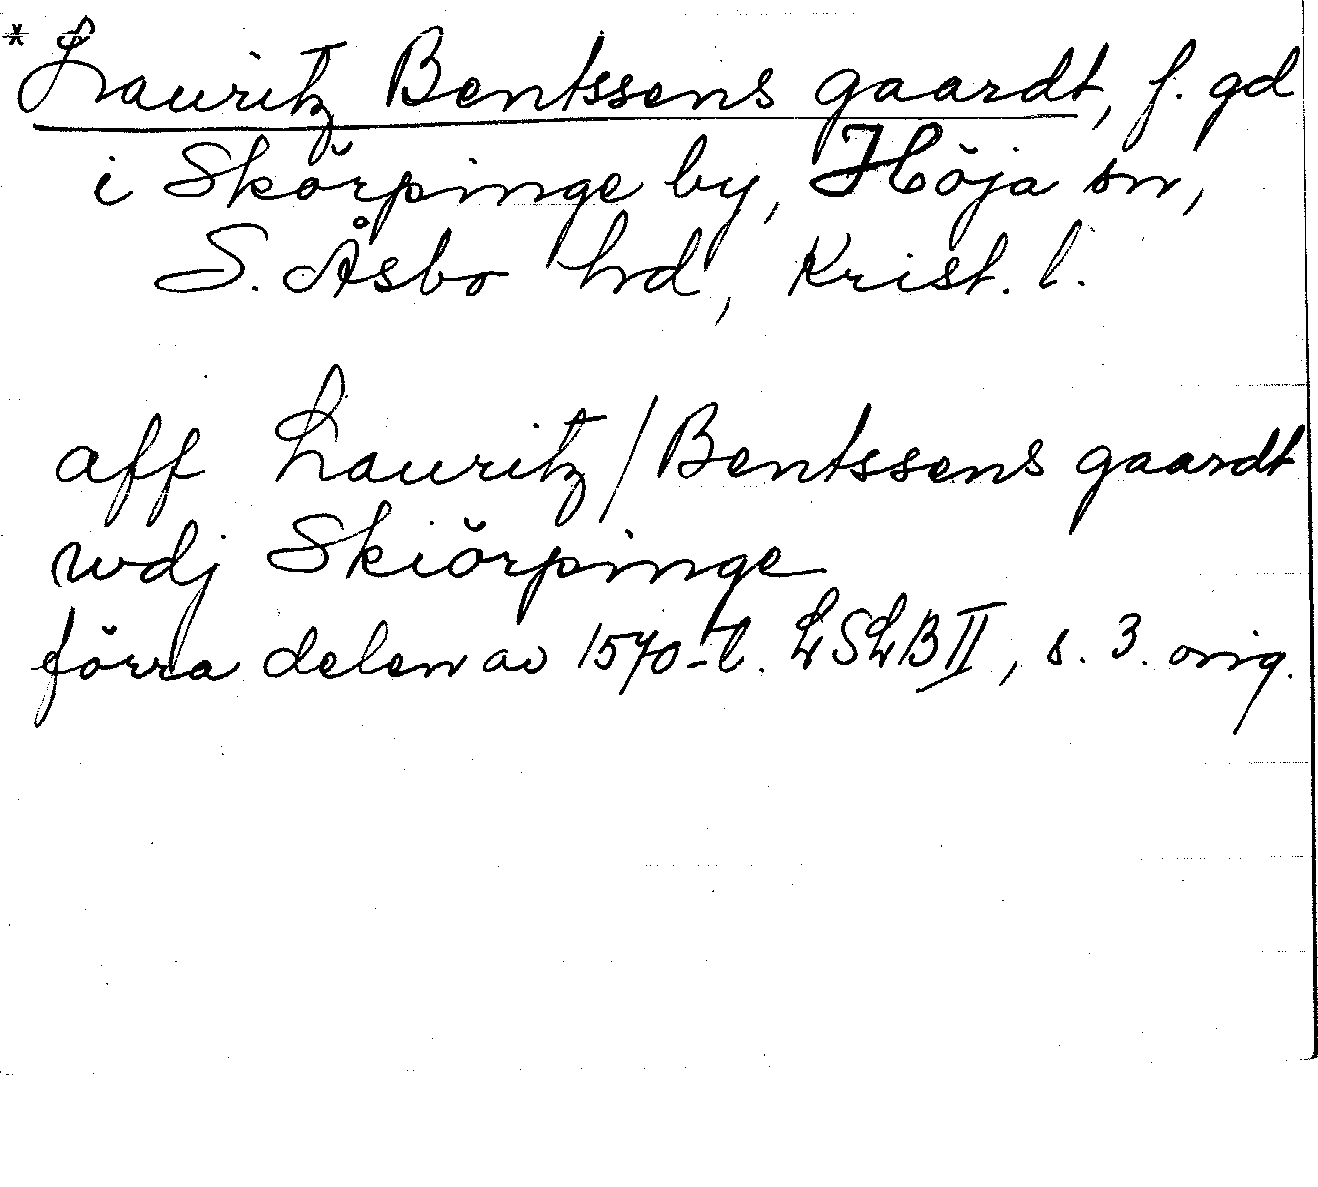 * Lauritz Bentssens gaardt, f. gd
i Skörpinge by, Höja sn,
S. Åsbo hd, Krist. l.
aff Lauritz/Bentssens gaardt
wdj Skiörpinge
förra delen av 1570-t. LSLB II, s. 3. orig.